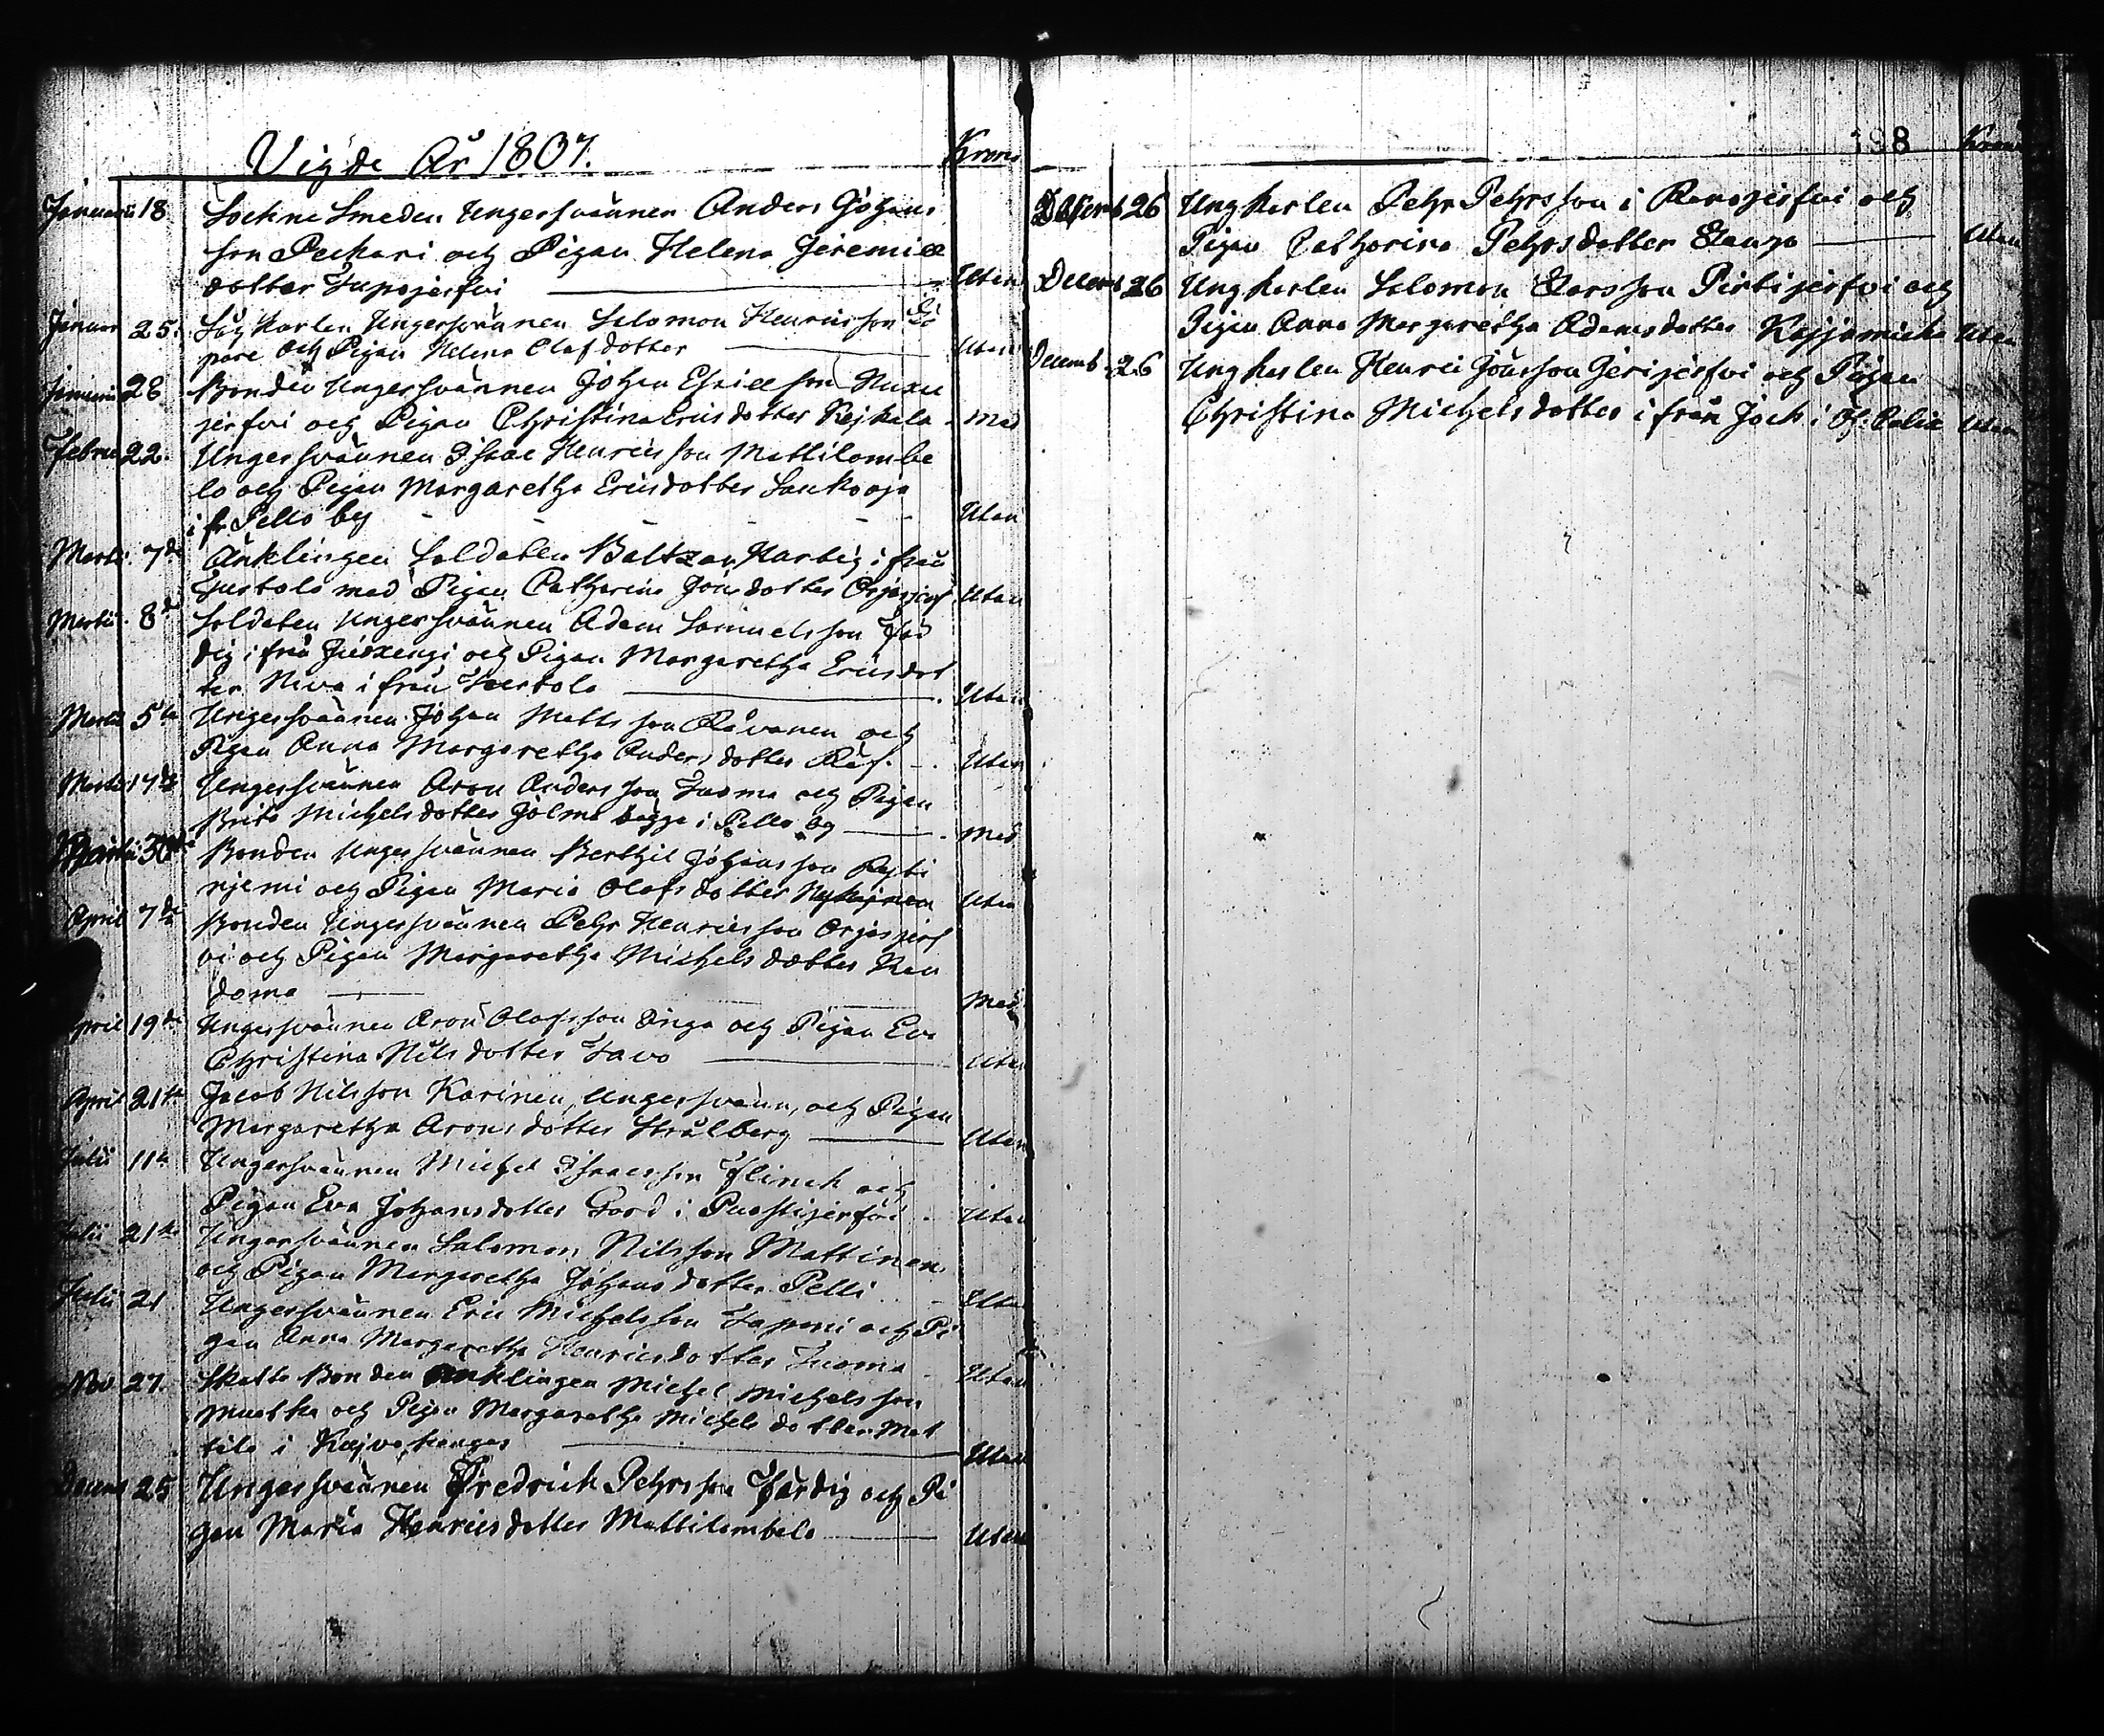 Vigde År 1807. Krona
Januarii 18 Sochne Smeden Ungersvännen Anders Johans
son Peckari och Pigan Helena Jeremiæ
dotter Supojerfvi Utan
Januar 25. Såg Karlen Ungersvännen Salomon Henricsson
pare och Pigan Helena Olafsdotter Utan
Januarii 28 Bonden Ungersvännen Johan Esaiæ son
jerfvi och Pigan Christina Ericsdotter Rejkala. Med
Februa 22. Ungersvännen Isaac Henricsson Mattilombo
lo och Pigan Margaretha Ericsdotter Laukooja
i fr. Pello by Utan
Martii 7de Änklingen Soldaten Baltzar Hartig i från
Turtola med Pigan Catharina Jönsdotter Orjasjerf Utan
Martii 8de Soldaten Ungersvännen Adam Samuelsson Fär
dig i från Juoxengi och Pigan Margaretha Ericsdot
ter Niva i från Turtola Utan
Martii 5te Ungersvännen Johan Matts son Råvanen och
Pigan Anna Margaretha Andersdotter Räf. Utan
Martii 17de Ungersvännen Aron Andersson Tuoma och Pigan
Brita Michelsdotter Jolma bägge i Pello by Med
Martii Bonden Ungersvännen Berthil Johansson
njemi och Pigan Maria Olofsdotter Utan
April 7de Bonden Ungersvännen Pehr Henricsson Orjasjerf
vi och Pigan Margaretha Michelsdotter Ran
doma Med
April 19de Ungersvännen Aron Olofsson Inga och Pigan Eva
Christina Nilsdotter Savo Utan
April 21te Jacob Nilsson Karinen, Ungersvänn, och Pigan
Margaretha Aronsdotter Strålberg Utan
Julii 11te Ungersvännen Michel Isaacsson Flinck och
Pigan Eva Johansdotter Gord i Puostijerfvi Utan
Julii 21te Ungersvännen Salomon Nilsson Mattinen
och Pigan Margaretha Johansdotter Pelli Utan
Julii 21 Ungersvännen Eric Michelsson Tapani och Pi
gan Anna Margaretha Henricsdotter Tuoma Utan
Nov. 27. Skatte Bonden Änklingen Michel Michelsson
Muotka och Pigan Margaretha Michelsdotter Mat
tila i Kajvokangas Utan
Decemb 25 Ungersvännen Fredrich Pehrsson Färdig och Pi
gan Maria Henricsdotter Mattilombolo Utan
198 Krona
Decemb 26 Ungkarlen Pehr Pehrsson i Ranojerfvi och
Pigan Catharina Pehrsdotter Stanga Utan
Decemb 26 Ungkarlen Salomon Larsson Pirtijerfvi och
Pigan Anna Margaretha Adamsdotter Utan
Decemb 26 Ungkarlen Henric Jönsson Jerijerfvi och Pigan
Christina Michelsdotter i från Jock i Öf: Calix Utan